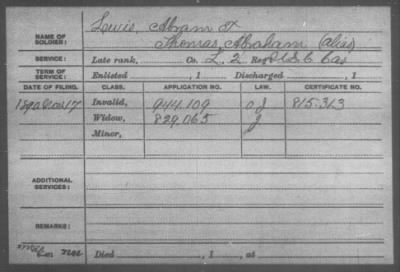 NAME OF SOLDIER: Lewis, Abram
Thomas, Abraham (alias)
SERVICE: Late rank, Co. L, 2 Reg't U.S.C. Cav
TERM OF SERVICE: Enlisted , 1 Discharged , 1
DATE OF FILING. CLASS. APPLICATION NO. LAW. CERTIFICATE NO.
17 Invalid, 944.109 815.363
Widow, 829.065
Minor,
ADDITIONAL SERVICES:
REMARKS:
Died , 1 , at